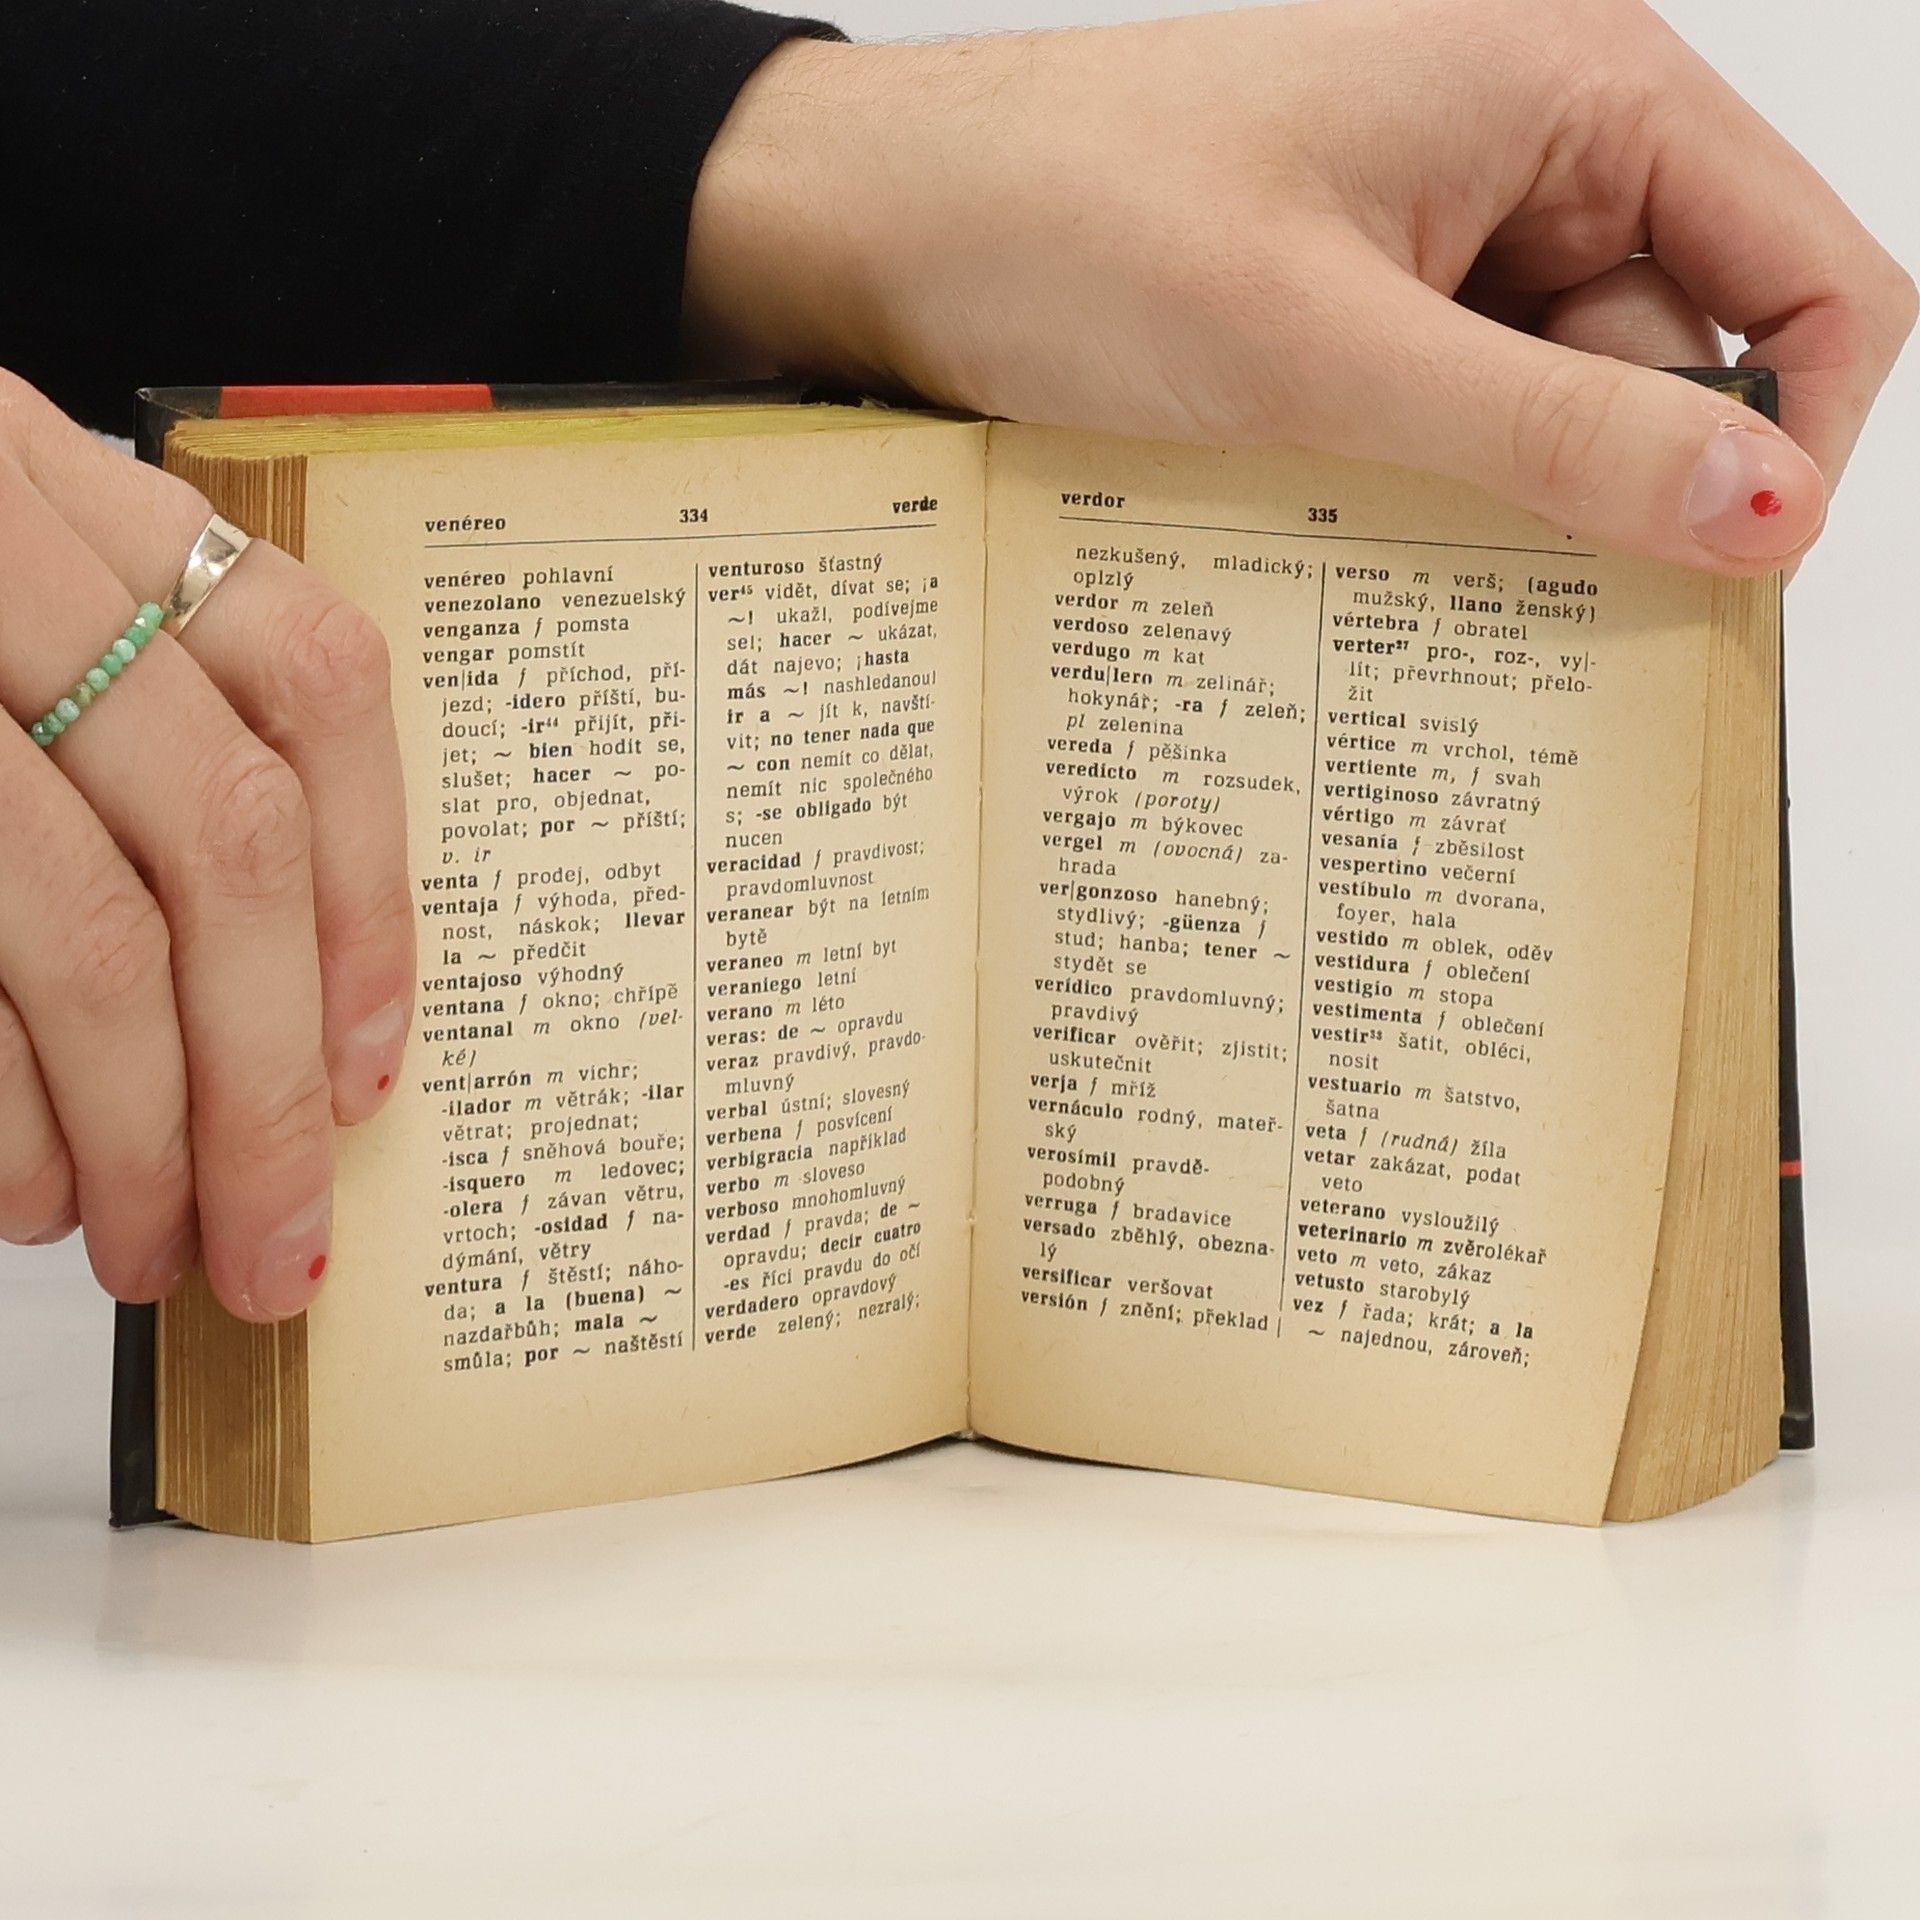 venéreo 334 verde
venéreo pohlavní
venezolano venezuelský
venganza f pomsta
vengar pomstít
ven|ida f příchod, pří-
jezd; -idero příští, bu-
doucí; -ir⁴⁴ přijít, při-
jet; ~ bien hodit se,
slušet; hacer ~ po-
slat pro, objednat,
povolat; por ~ příští;
v. ir
venta f prodej, odbyt
ventaja f výhoda, před-
nost, náskok; llevar
la ~ předčit
ventajoso výhodný
ventana f okno; chřípě
ventanal m okno (vel-
ké)
vent|arrón m vichr;
-ilador m větrák; -ilar
větrat; projednat;
-isca f sněhová bouře;
-isquero m ledovec;
-olera f závan větru,
vrtoch; -osidad f na-
dýmání, větry
ventura f štěstí; náho-
da; a la (buena) ~
nazdařbůh; mala ~
smůla; por ~ naštěstí
venturoso šťastný
ver⁴⁵ vidět, dívat se; ¡a
~! ukaž!, podívejme
se!; hacer ~ ukázat,
dát najevo; ¡hasta
más ~! nashledanou!
ir a ~ jít k, navští-
vit; no tener nada que
~ con nemít co dělat,
nemít nic společného
s; -se obligado být
nucen
veracidad f pravdivost;
pravdomluvnost
veranear být na letním
bytě
veraneo m letní byt
veraniego letní
verano m léto
veras: de ~ opravdu
veraz pravdivý, pravdo-
mluvný
verbal ústní; slovesný
verbena f posvícení
verbigracia například
verbo m sloveso
verboso mnohomluvný
verdad f pravda; de ~
opravdu; decir cuatro
-es říci pravdu do očí
verdadero opravdový
verde zelený; nezralý;
verdor 335
nezkušený, mladický;
oplzlý
verdor m zeleň
verdoso zelenavý
verdugo m kat
verdu|lero m zelinář;
hokynář; -ra f zeleň;
pl zelenina
vereda f pěšinka
veredicto m rozsudek,
výrok (poroty)
vergajo m býkovec
vergel m (ovocná) za-
hrada
ver|gonzoso hanebný;
stydlivý; -güenza f
stud; hanba; tener ~
stydět se
verídico pravdomluvný;
pravdivý
verificar ověřit; zjistit;
uskutečnit
verja f mříž
vernáculo rodný, mateř-
ský
verosímil pravdě-
podobný
verruga f bradavice
versado zběhlý, obezna-
lý
versificar veršovat
versión f znění; překlad
verso m verš; (agudo
mužský, llano ženský)
vértebra f obratel
verter²⁷ pro-, roz-, vy|-
lít; převrhnout; přelo-
žit
vertical svislý
vértice m vrchol, témě
vertiente m, f svah
vertiginoso závratný
vértigo m závrať
vesanía f zběsilost
vespertino večerní
vestíbulo m dvorana,
foyer, hala
vestido m oblek, oděv
vestidura f oblečení
vestigio m stopa
vestimenta f oblečení
vestir³³ šatit, obléci,
nosit
vestuario m šatstvo,
šatna
veta f (rudná) žíla
vetar zakázat, podat
veto
veterano vysloužilý
veterinario m zvěrolékař
veto m veto, zákaz
vetusto starobylý
vez f řada; krát; a la
~ najednou, zároveň;